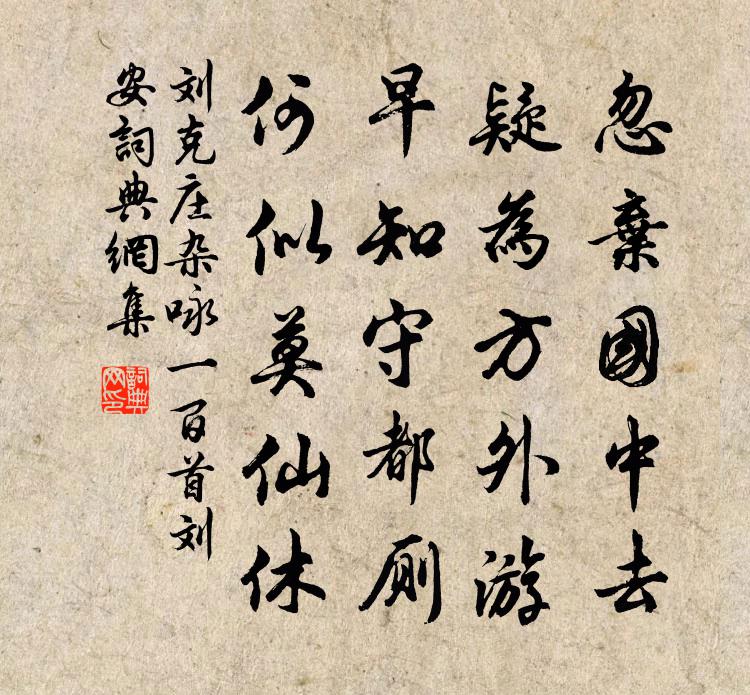 忽棄國中去
疑為方外游
早知守都厠
何似莫仙休
刘克庄杂咏一百首刘
安詞典網集
詞典
网印